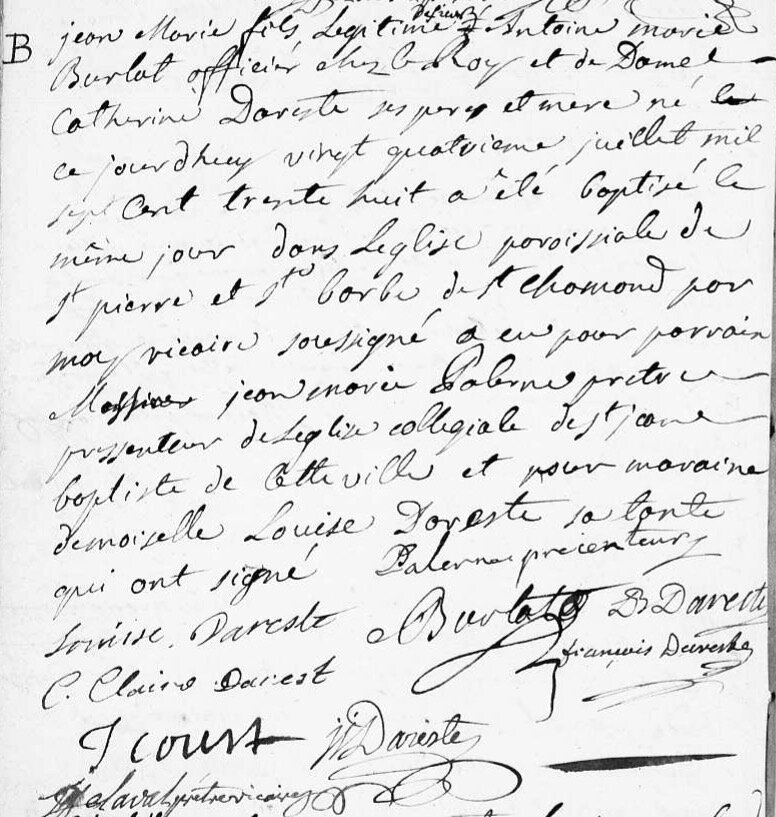 B
jean Marie fils Legitime de sieur Antoine marie
Burlat officier chez le Roy et de Dame
Catherine Dareste ses pere et mere né le
ce jourdhuy vingt quatrieme juillet mil
sept Cent trente huit a été baptisé le
même jour dans Leglise paroissiale de
St pierre et Ste barbe de St chamond par
moy vicaire soussigné a eu pour parrain
Messire jean marie Palerne pretre
pressenteur de Leglise collegiale de St jean
baptiste de Cette ville et pour maraine
demoiselle Louise Dareste sa tante
qui ont signé Palerne précenteur
Louise Dareste Burlat D Dareste
françois Dareste
C. Claire Darest
J court Dareste
Laval prêtre vicaire